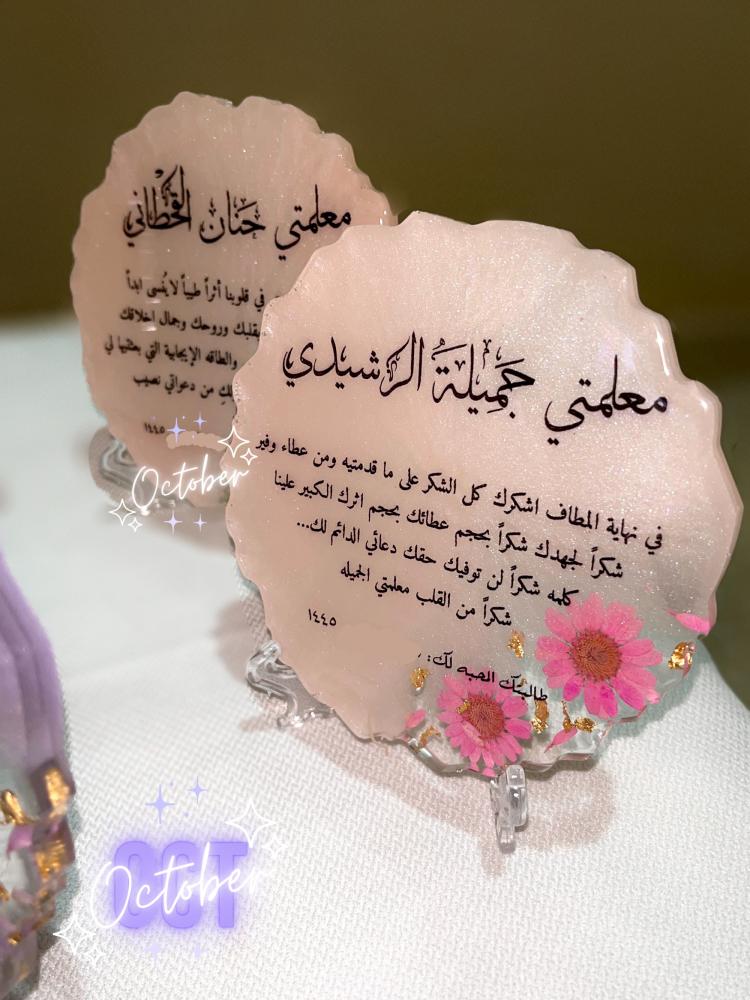 معلمتي حَنان القحطاني
في قلوبنا أثراً طيباً لا يُنسى ابداً
بقلبك وروحك وجمال اخلاقك
والطاقه الإيجابية التي بعثتيها لي
لكِ من دعواتي نصيب
١٤٤٥
October
معلمتي جَميلَة الرشيدي
في نهاية المطاف اشكرك كل الشكر على ما قدمتيه ومن عطاء وفير
شكراً لجهدك شكراً بحجم عطائك بحجم اثرك الكبير علينا
كلمه شكراً لن توفيك حقك دعائي الدائم لك...
شكراً من القلب معلمتي الجميله
١٤٤٥
طالبتك المحبه لك: ,
OCT
October